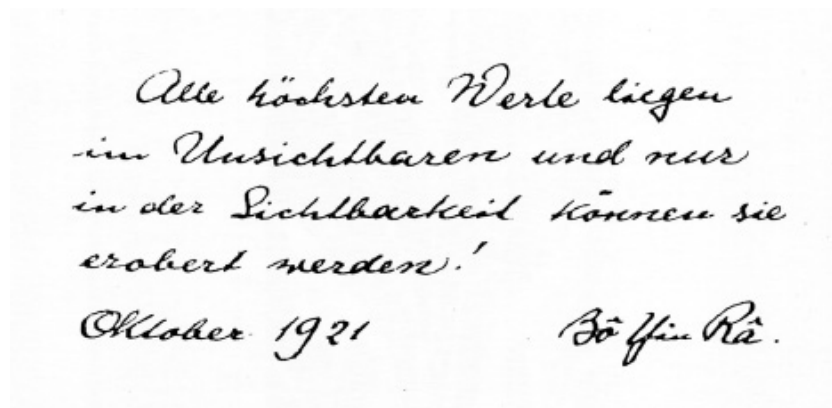 Alle höchsten Werte liegen
im Unsichtbaren und nur
in der Sichtbarkeit können sie
erobert werden!
Oktober 1921 Bô Yin Râ.